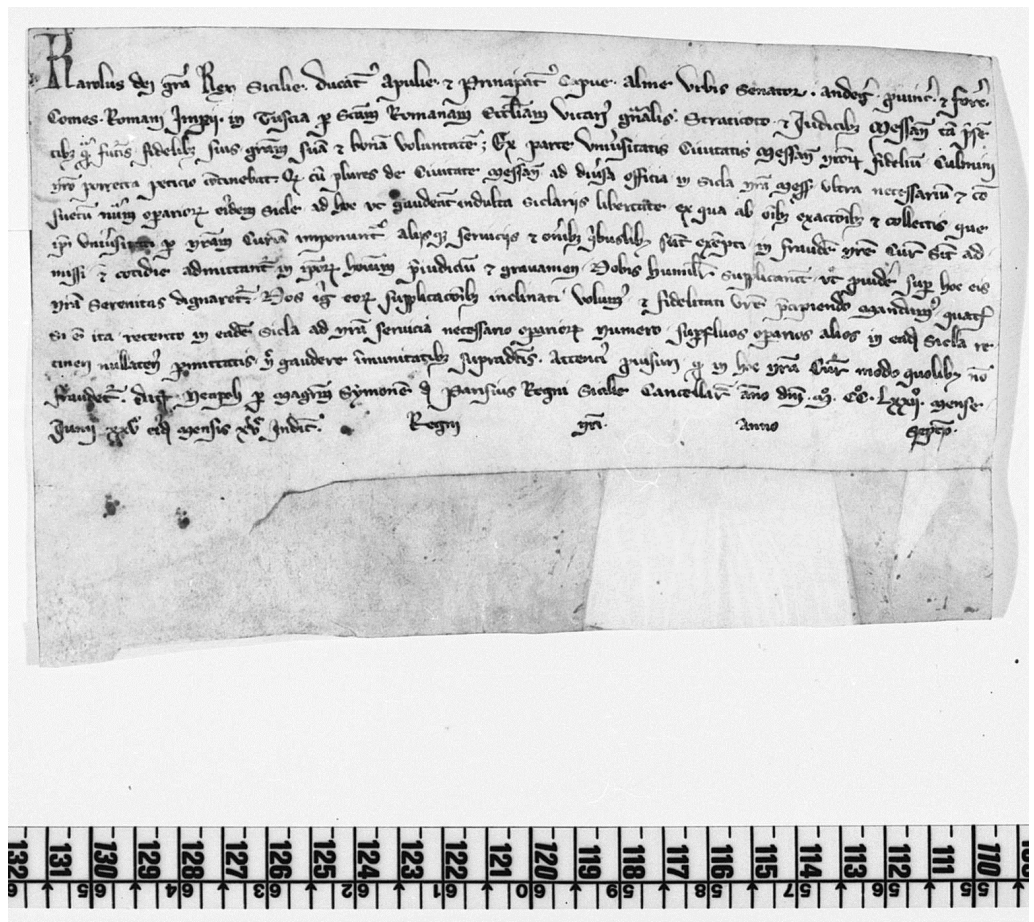 Karolus dei gr̃a Rex Sicilie. ducat⁹ Apulie ⁊ Principat⁹ Capue. alme Urbis Senator. andeg̃. ꝓuinc̃. ⁊ forc̃.
Comes. Romani Impij. in Tuscia ꝑ Sc̃am Romanam Eccl̃iam Vicari⁹ gñalis. Straticoto ⁊ Judicibȝ Messañ tã p̃sẽ
tibȝ q̃ futis fidelibȝ suis gr̃am suã ⁊ bonã voluntatẽ; Ex parte Uniu̾sitatis Ciuitatis Messañ nr̃oꝝ fideliũ Culmini
nr̃o porrecta peticio ↄ̃tinebat. Qꝫ cũ plures de Ciuitate Messañ ad diu̾sa officia in Sicla nr̃a Mess̃. ultra necessariũ ⁊ cõ
suetũ nũm̃ oꝑarioꝝ eiusdem Sicle. ad hoc ut gaudeãt indulta Siclariis libertate ex qua ab oĩbȝ exactõibȝ ⁊ collectis que
ip̃i Uniu̾sitati ꝑ nr̃am Curiã imponunt᷑ aliisqȝ seruiciis ⁊ on̾ibȝ q̾buslibȝ sũt exẽpti in fraudẽ nr̃e Cur̃ Sĩt ad
missi ⁊ cotidie admittant᷑ in ip̃oꝝ hoĩum p̾iudiciũ ⁊ grauamen. Nobis humilĩt supplicarũt. ut ꝓuid̾e suꝑ hoc eis
nr̃a Serenitas dignaret᷑. Nos ig̃ eoꝝ supplicacõibȝ inclinati volum⁹ ⁊ fidelitati vr̃e p̾cipiendo mandam⁹ quat̾
si ẽ ita. retento in eadẽ Sicla ad nr̃a seruicia necessario oꝑarioꝝ numero. suꝑfluos oꝑarios alios in eadẽ Sicla re
tineri nullaten⁹ ꝑmittatis ⁊ gaudere ĩmunitatibȝ supradc̃is. Attenti⁹ ꝓuisuri q̃ in hoc nr̃a Cur̃ modo quolibȝ nõ
fraudet᷑. dat̃ Neapoli ꝑ magr̃m Symonẽ de Parisius Regni Sicilie Cancellar̃ ãno dñi .Mº. CCº. LXXIIº. Mense
Junii xxv eiusdẽ mensis xvᵉ Indict̃. Regni nr̃i. Anno Septĩo.
132 131 130 129 128 127 126 125 124 123 122 121 120 119 118 117 116 115 114 113 112 111 110
65 64 63 62 61 60 59 58 57 56 55